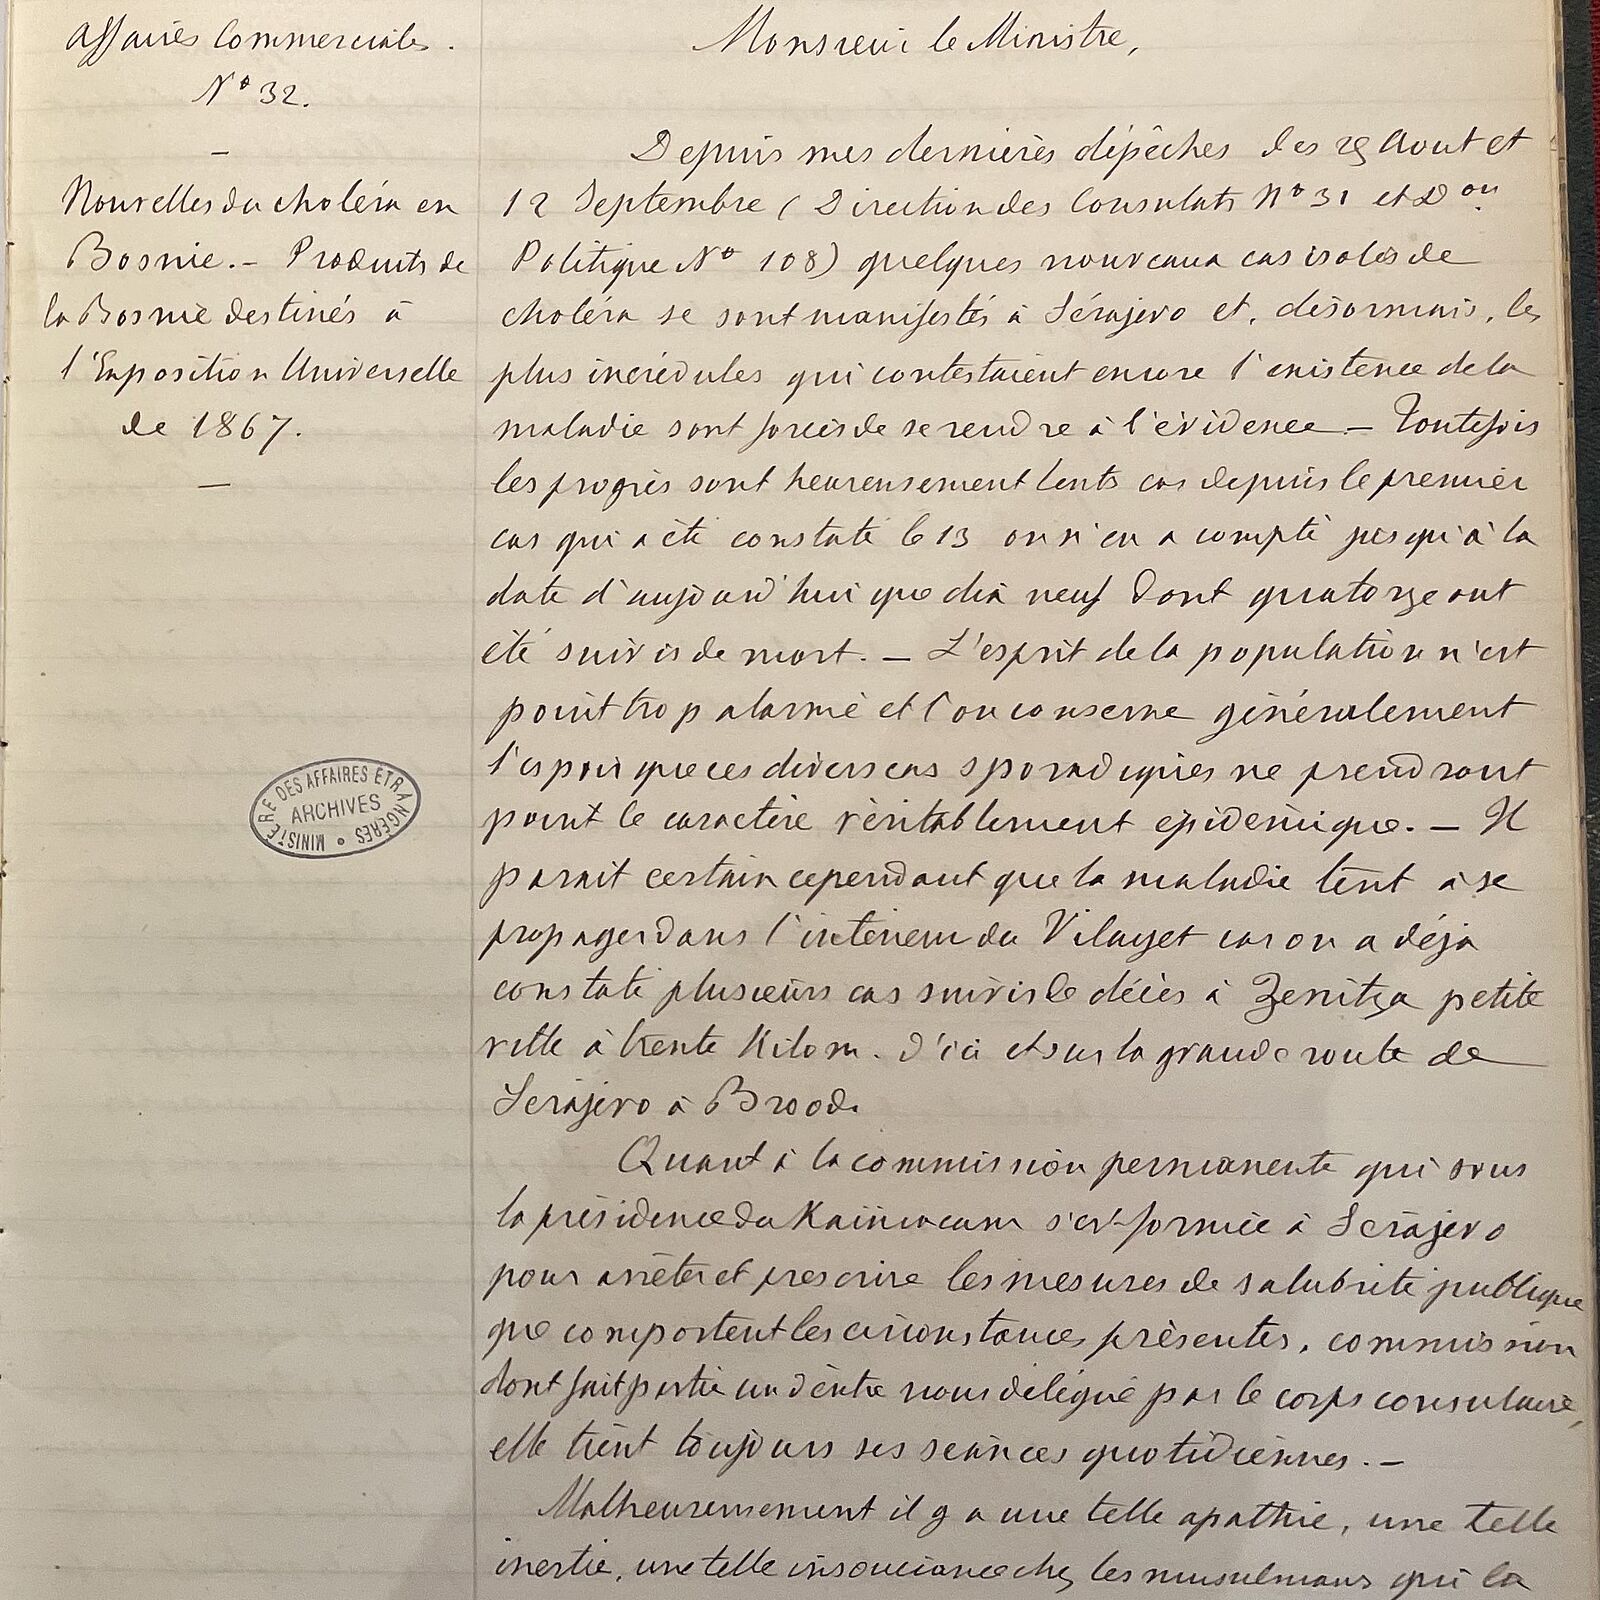 Affaires Commerciales.
N° 32.
–
Nouvelles du choléra en
Bosnie. – Produits de
la Bosnie destinés à
l'Exposition Universelle
de 1867.
–
MINISTÈRE DES AFFAIRES ÉTRANGÈRES
ARCHIVES
Monsieur le Ministre,
Depuis mes dernières dépêches des 29 Aout et
12 Septembre (Direction des Consulats N° 31 et Don
Politique N° 108) quelques nouveaux cas isolés de
choléra se sont manifestés à Sérajevo et, désormais, les
plus incrédules qui contestaient encore l'existence de la
maladie sont forcés de se rendre à l'évidence – Toutefois
les progrès sont heureusement lents car depuis le premier
cas qui a été constaté le 13 on n'en a compté jusqu'à la
date d'aujourd'hui que dix neuf dont quatorze ont
été suivis de mort. – L'esprit de la population n'est
point trop alarmé et l'on conserve généralement
l'espoir que ces divers cas sporadiques ne prendront
point le caractère véritablement épidémique. – Il
parait certain cependant que la maladie tent à se
propager dans l'intérieur du Vilayet car on a déjà
constaté plusieurs cas suivis de décès à Zenitza petite
ville à trente Kilom. d'ici et sur la grande route de
Serajevo à Brood.
Quant à la commission permanente qui sous
la présidence du Kaïmacam s'est formée à Serajevo
pour arrêter et prescrire les mesures de salubrité publique
que comportent les circonstances présentes, commission
dont fait partie un d'entre nous délégué par le corps consulaire,
elle tient toujours ses séances quotidiennes. –
Malheureusement il y a une telle apathie, une telle
inertie, une telle insouciance chez les musulmans qui la